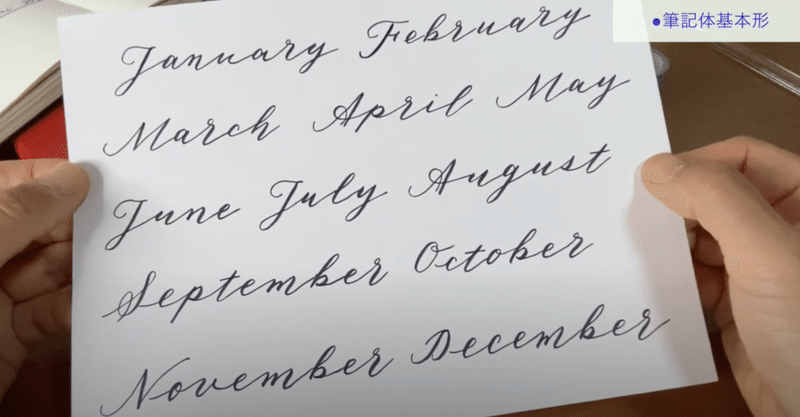 ●筆記体基本形
January February
March April May
June July August
September October
November December